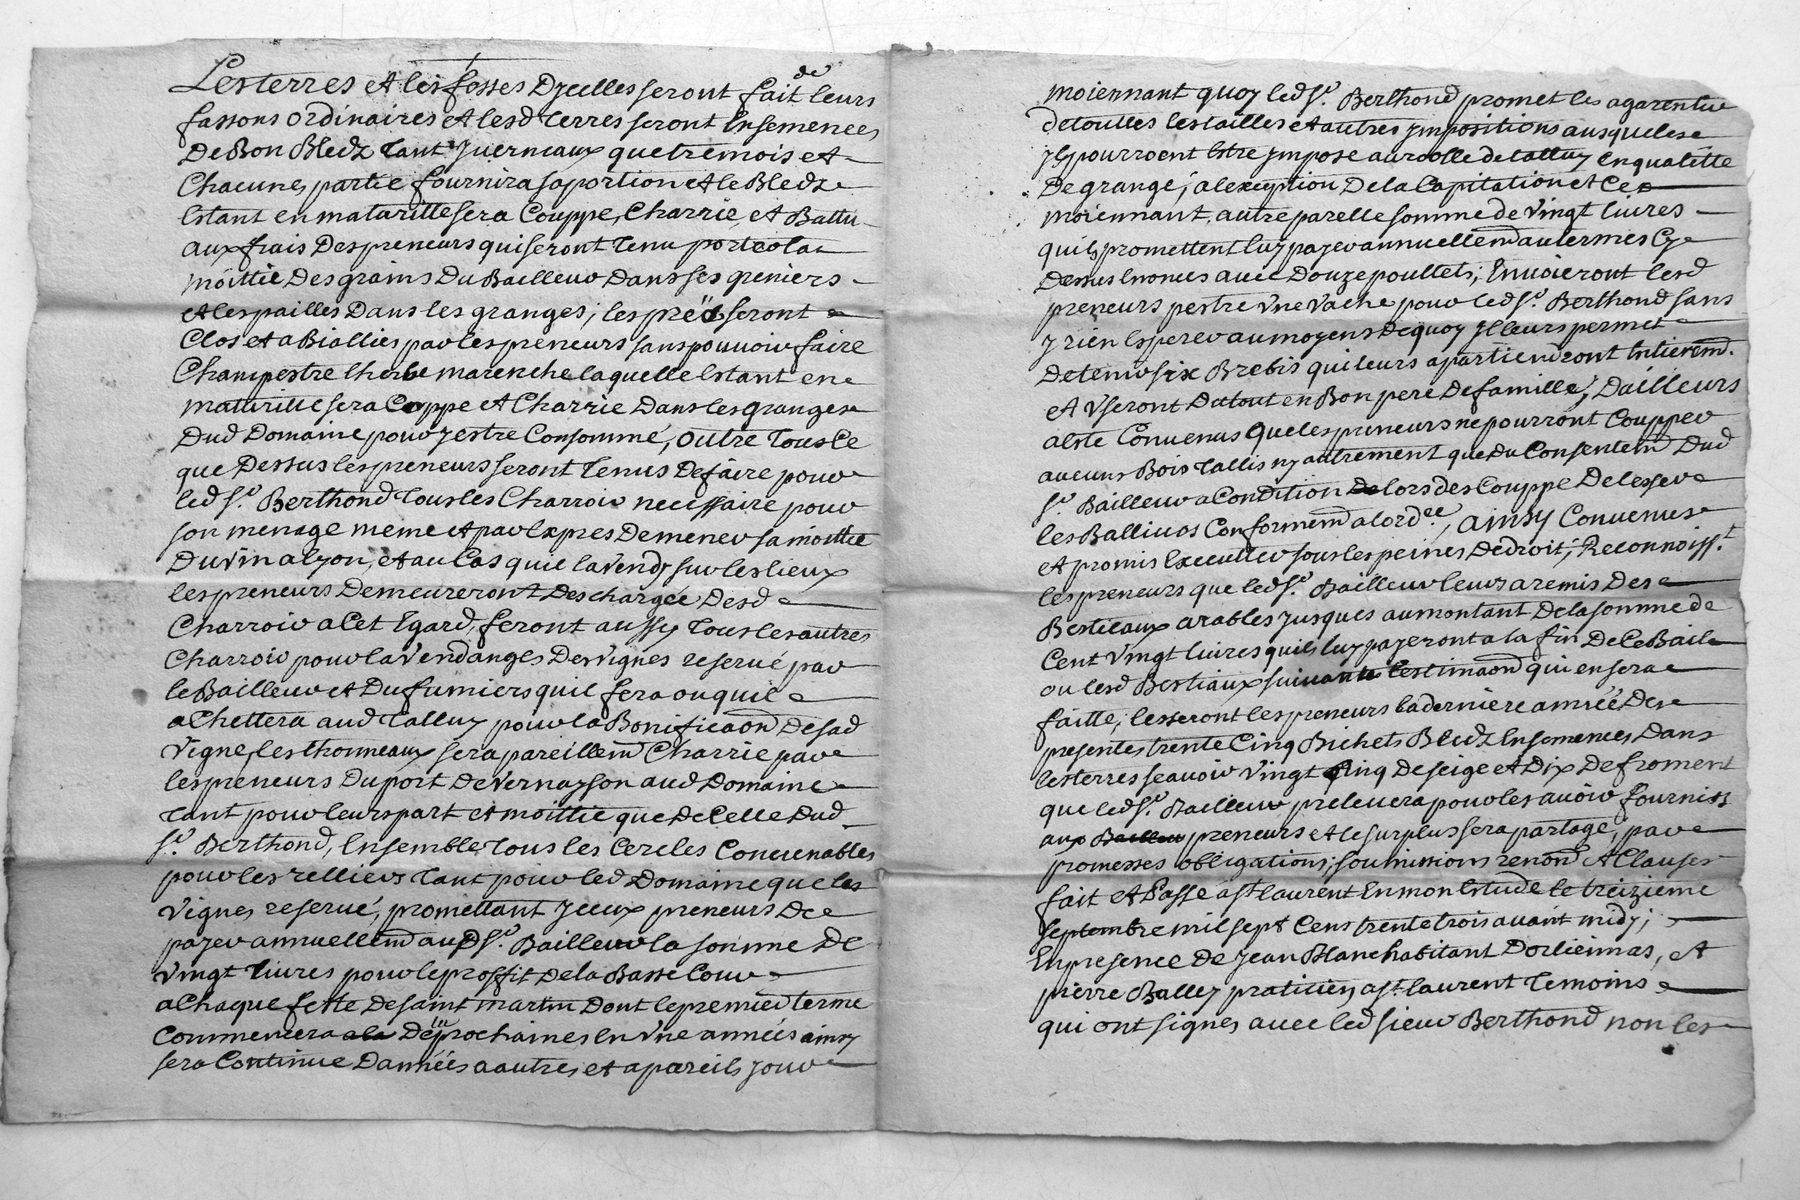 Les terres et les fosses d'jcelles seront fait de leurs
fassons ordinaires et lesd terres seront Ensemencées
De Bon Bledz tant yuerneaux que tremois et
Chacunes partie fournira sa portion et le Bledz
Estant en maturitte sera Couppé, Charrié et Battu
aux frais Des preneurs qui seront tenu porter la
moittie Des grains Du Bailleur Dans ses greniers
et les pailles Dans les granges; les prés seront
Clos et aBiallies par les preneurs sans pouuoir faire
Champestre l'herbe marenche laquelle Estant en
maturitte sera Coppe et Charrie Dans les granges
Dud Domaine pour y estre Consommé, outre tous Ce
que Dessus les preneurs seront tenus De faire pour
led Sr. Berthond tous les Charroir necessaire pour
son menage meme et par Expres De mener sa moittie
Du vin a Lyon, et au Cas qu'il la vendz sur les lieux
les preneurs Demeureront Deschargée Desd
Charroir a Cet Egard, feront aussy tous les autres
Charroir pour la vendanges Des vignes reserué par
le Bailleur et Du fumiers qu'il fera ou qu'il
aChettera aud talluy pour la Bonificaon De sad
vigne, les thonneaux sera pareillem Charrie par
les preneurs Du port De vernayson aud Domaine
tant pour leurs part et moittie que De Celle Dud
Sr. Berthond, Ensemble tous les Cercles Conuenables
pour les relliers tant pour led Domaine que les
vignes reserué, promettant jceux preneurs De
payer annuellem audSr. Bailleur la somme De
vingt liures pour le proffit De la Basse Cour
a Chaque feste De saint martin Dont le premier terme
Commencera a la prochaines En vne années ainsy
sera Continue D'années a autres et a pareils jour
moiennant quoy led Sr. Berthond promet les agarentir
De touttes les tailles et autres jmpositions ausqueles
jls pourroent Estre jmpose au roolle de talluy en qualitte
De grangé; a l'exeption De la Capitation et Ce
moiennant autre parelle somme de vingt liures
qu'ils promettent luy payer annuellem au termes Cy
Dessus Enonces auec Douze poullets; Enuoieront lesd
preneurs pestre vne vache pour led Sr. Berthond sans
y rien Esperer au moyens De quoy jl leurs permet
De tenir six Brebis qui leurs apartiendront Entierem.
et vseront Du tout en Bon pere De famille; D'ailleurs
a Este Conuenus que les preneurs ne pourront Coupper
aucuns Bois tallis ny autrement que Du Consentem Dud
Sr. Bailleur a Condition De lors des Couppe De lesser
les Balliuos Conformem a lord.ce, ainsy Conuenus
et promis Executter sous les peines De droit; Reconnoiss.t
les preneurs que led Sr. Bailleur leurs a remis Des
Bestieaux arables jusques au montant De la somme de
Cent vingt liures qu'ils luy payeront a la fin De Ce Bail
ou lesd Bestiaux suiuant l'estimaon qui en sera
faitte; lesseront les preneurs la derniere année Des
presentes trente Cinq Bichets Bledz Ensemences Dans
les terres scauoir vingt Cinq De seige et Dix De froment
que led Sr. Bailleur preleuera pour les auoir fournis
aux Bailleur preneurs et le surplus sera partagé, par
promesses obligations, soumissions renon et Clauses
fait et Passe a st laurent En mon Estude le treizieme
septembre mil sept Cens trente trois auant midy;
En presence De Jean Blanc habitant D'orliennas, et
pierre Balley praticien a st. laurent temoins
qui ont signes auec led sieur Berthond non les